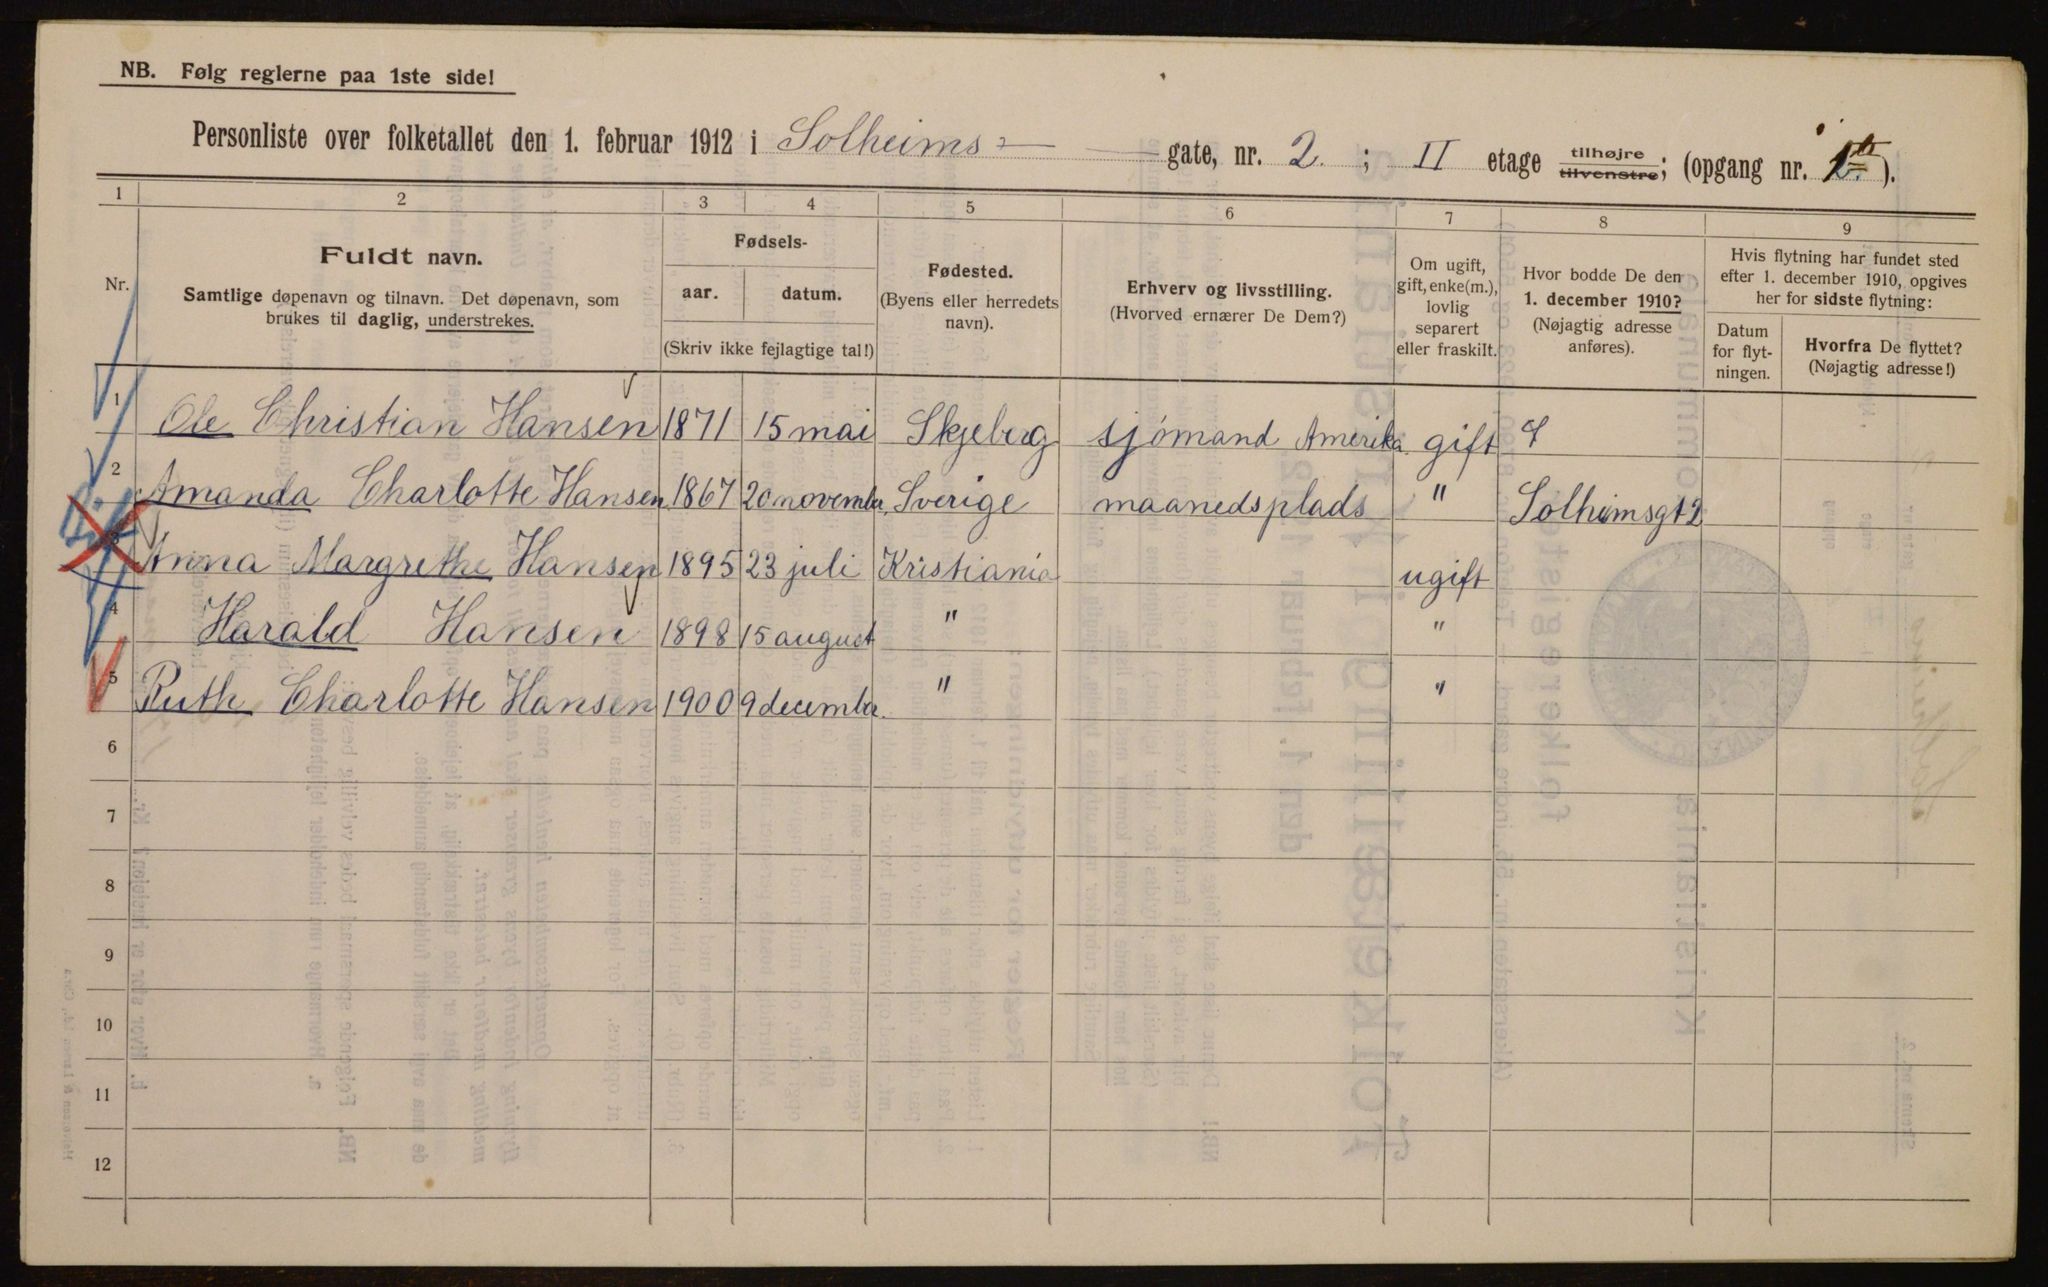 NB. Følg reglerne paa 1ste side!
Personliste over folketallet den 1. februar 1912 i Solheims- gate, nr. 2. ; II etage tilhøjre tilvenstre; (opgang nr. ).
1 2 3 4 5 6 7 8 9
Nr.
Fuldt navn.
Samtlige døpenavn og tilnavn. Det døpenavn, som
brukes til daglig, understrekes.
Fødsels-
aar. datum.
(Skriv ikke fejlagtige tal!)
Fødested.
(Byens eller herredets
navn).
Erhverv og livsstilling.
(Hvorved ernærer De Dem?)
Om ugift,
gift, enke(m.),
lovlig
separert
eller fraskilt.
Hvor bodde De den
1. december 1910?
(Nøjagtig adresse
anføres).
Hvis flytning har fundet sted
efter 1. december 1910, opgives
her for sidste flytning:
Datum
for flyt-
ningen.
Hvorfra De flyttet?
(Nøjagtig adresse!)
1 Ole Christian Hansen 1871 15 mai Skjeberg sjømand Amerika gift
2 Amanda Charlotte Hansen 1867 20 november Sverige maanedsplads " Solheimsgt 2
3 Anna Margrethe Hansen 1895 23 juli Kristiania ugift
4 Harald Hansen 1898 15 august " "
5 Ruth Charlotte Hansen 1900 9 december " "
6
7
8
9
10
11
12